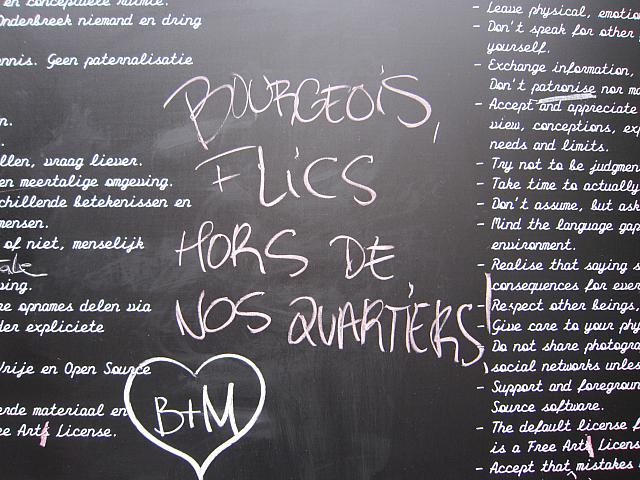 Onderbreek niemand en dring
ennis. Geen paternalisatie
llen, vraag liever.
en meertalige omgeving.
chillende betekenissen en
mensen.
of niet, menselijk
ving.
re opnames delen via
der expliciete
Vrije en Open Source
erde materiaal en
ee Arts License.
BOURGEOIS,
FLICS
HORS DE
NOS QUARTIERS!
B+M
- Leave physical, emotio
- Don't speak for other
yourself.
- Exchange information.
Don't patronise nor ma
- Accept and appreciate
view, conceptions, exp
needs and limits.
- Try not to be judgmen
- Take time to actually
- Don't assume, but ask
- Mind the language gap
environment.
- Realise that saying s
consequences for ever
- Respect other beings,
- Give care to your phy
- Do not share photogra
social networks unles
- Support and foregroun
Source software.
- The default license f
is a Free Arts Licens
- Accept that mistakes